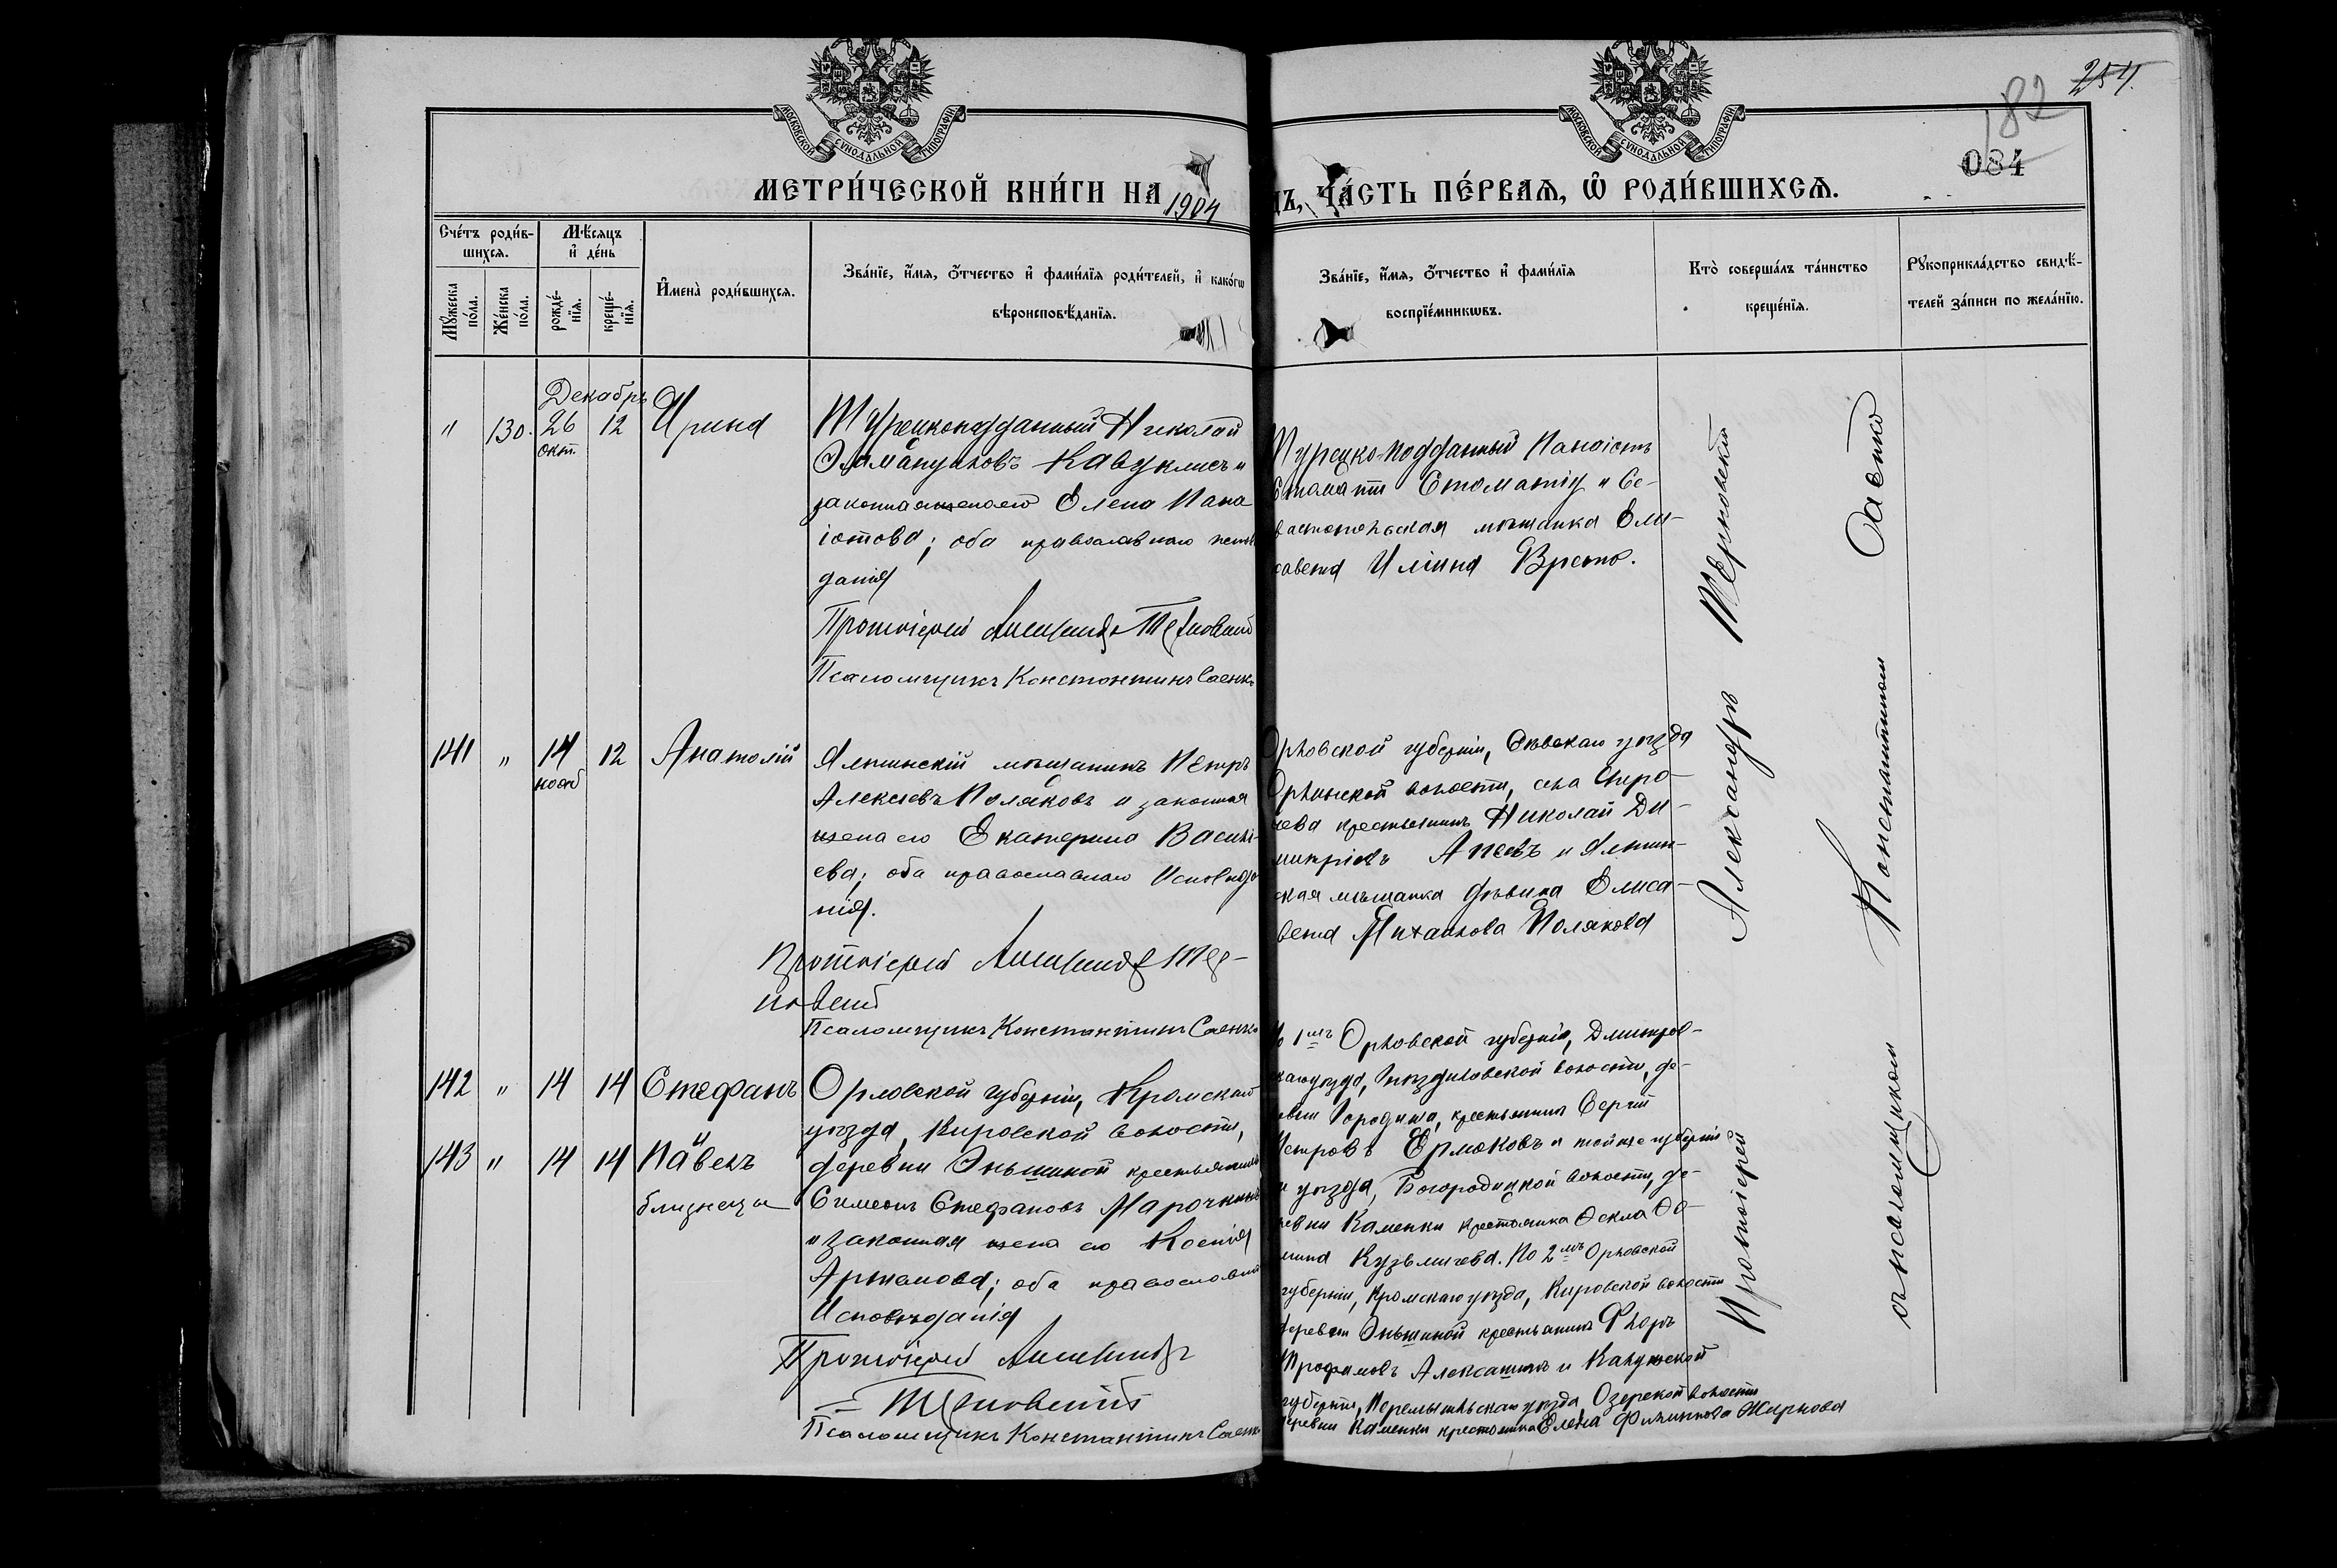 МОСКОВСКОЙ СѴНОДАЛЬНОЙ ТИПОГРАФІИ
МОСКОВСКОЙ СѴНОДАЛЬНОЙ ТИПОГРАФІИ
254.
182
084
МЕТРИ́ЧЕСКОЙ КНИ́ГИ НА 1904
ДЪ, ЧА́СТЬ ПЕ́РВАЯ, Ѡ РОДИ́ВШИХСЯ.
Сче́тъ роди́в-
шихся.
Мѣ́сяцъ
и де́нь
Мꙋ́жеска
по́ла.
Же́нска
по́ла.
рожде́-
нїя.
креще́-
нїя.
Имена̀ роди́вшихся.
Зва́нїе, и́мя, о́тчество и фами́лїя роди́телей, и како́гѡ
вѣроисповѣ́данїя.
Зва́нїе, и́мя, о́тчество и фами́лїя
воспрїе́мникѡвъ.
Кто̀ соверша́лъ та́инство
креще́нїя.
Рꙋкоприкла́дство свидѣ́-
телей за́писи по жела́нїю.
Декабрь
" 130. 26 12 Ирина
окт.
Турецкоподданный Николай
Эммануиловъ Кавуклисъ и
законная жена его Елена Пана
іотова; оба православнаго испове
данія
Протоіерей Александръ Терновскій
Псаломщикъ Константинъ Саенко
Турецко-подданный Панаіотъ
Стамати Стоматіу и Се-
вастопольская мѣщанка Ели-
савета Ильина Врето.
141 " 14 12 Анатолій
нояб
Ялтинскій мѣщанинъ Петръ
Алексѣевъ Поляковъ и законная
жена его Екатерина Василь-
ева; оба православнаго Исповѣда
нія.
Протоіерей Александръ Тер-
новскій
Псаломщикъ Константинъ Саенко
Орловской губерніи, Сѣвскаго уѣзда
Орлинской волости, села
чева крестьянинъ Николай Ди-
митріевъ и Ялтин-
ская мѣщанка дѣвица Елиса-
вета Михаилова Полякова
142 " 14 14 Стефанъ
и
143 " 14 14 Павелъ
близнецы
Орловской губерніи, Кромскаго
уѣзда, Кировской волости,
деревни Эньшиной крестьянинъ
Симеонъ Стефановъ Марочкинъ
и законная жена его Ксенія
Артамонова; оба православнаго
Исповѣданія
Протоіерей Александръ
Терновскій
Псаломщикъ Константинъ Саенко
По 1мъ Орловской губерніи, Дмитров-
скаго уѣзда, волости, де-
ревни Городища, крестьянинъ Сергій
Петровъ Ермаковъ и той же губерніи
и уѣзда, Богородицкой волости, де-
ревни Каменки крестьянка Ѳекла Ѳо-
мина Кузьмичева. По 2мъ Орловской
губерніи, Кромскаго уѣзда, Кировской волости
деревни Эньшиной крестьянинъ Флоръ
Трофимовъ Алексашинъ и Калужской
губерніи, Перемышльскаго уѣзда Озерской волости
деревни Каменки крестьянка Елена Филиппова Жиркова
Протоіерей Александръ Терновскій
съ псаломщикомъ Константиномъ Саенко